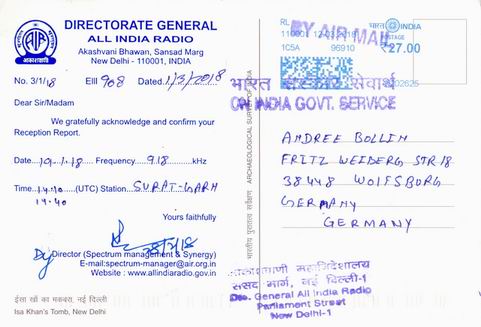 DIRECTORATE GENERAL
ALL INDIA RADIO
Akashvani Bhawan, Sansad Marg
New Delhi - 110001, INDIA
AIR
आकाशवाणी
No. 3/1/18 EIII 908 Dated 1/3/2018
Dear Sir/Madam
We gratefully acknowledge and confirm your
Reception Report.
Date....10.1.18.... Frequency....918......kHz
Time...14.10....(UTC) Station...SURAT-GARH
14.40
Yours faithfully
Dy Director (Spectrum management & Synergy)
E-mail:spectrum-manager@air.org.in
Website : www.allindiaradio.gov.in
ईसा खाँ का मकबरा, नई दिल्ली
Isa Khan's Tomb, New Delhi
भारतीय पुरातत्व सर्वेक्षण ARCHAEOLOGICAL SURVEY OF INDIA
RL
110001 12-03-2018
1C5A 96910
भारत INDIA
POSTAGE
₹27.00
BY AIR MAIL
भारत सरकार सेवार्थ
ON INDIA GOVT. SERVICE
ANDREE BOLLIN
FRITZ WEIBERG STR 18
38448 WOLFSBURG
GERMANY
GERMANY
आकाशवाणी महानिदेशालय
संसद मार्ग, नई दिल्ली-1
General All India Radio
Parliament Street
New Delhi-1